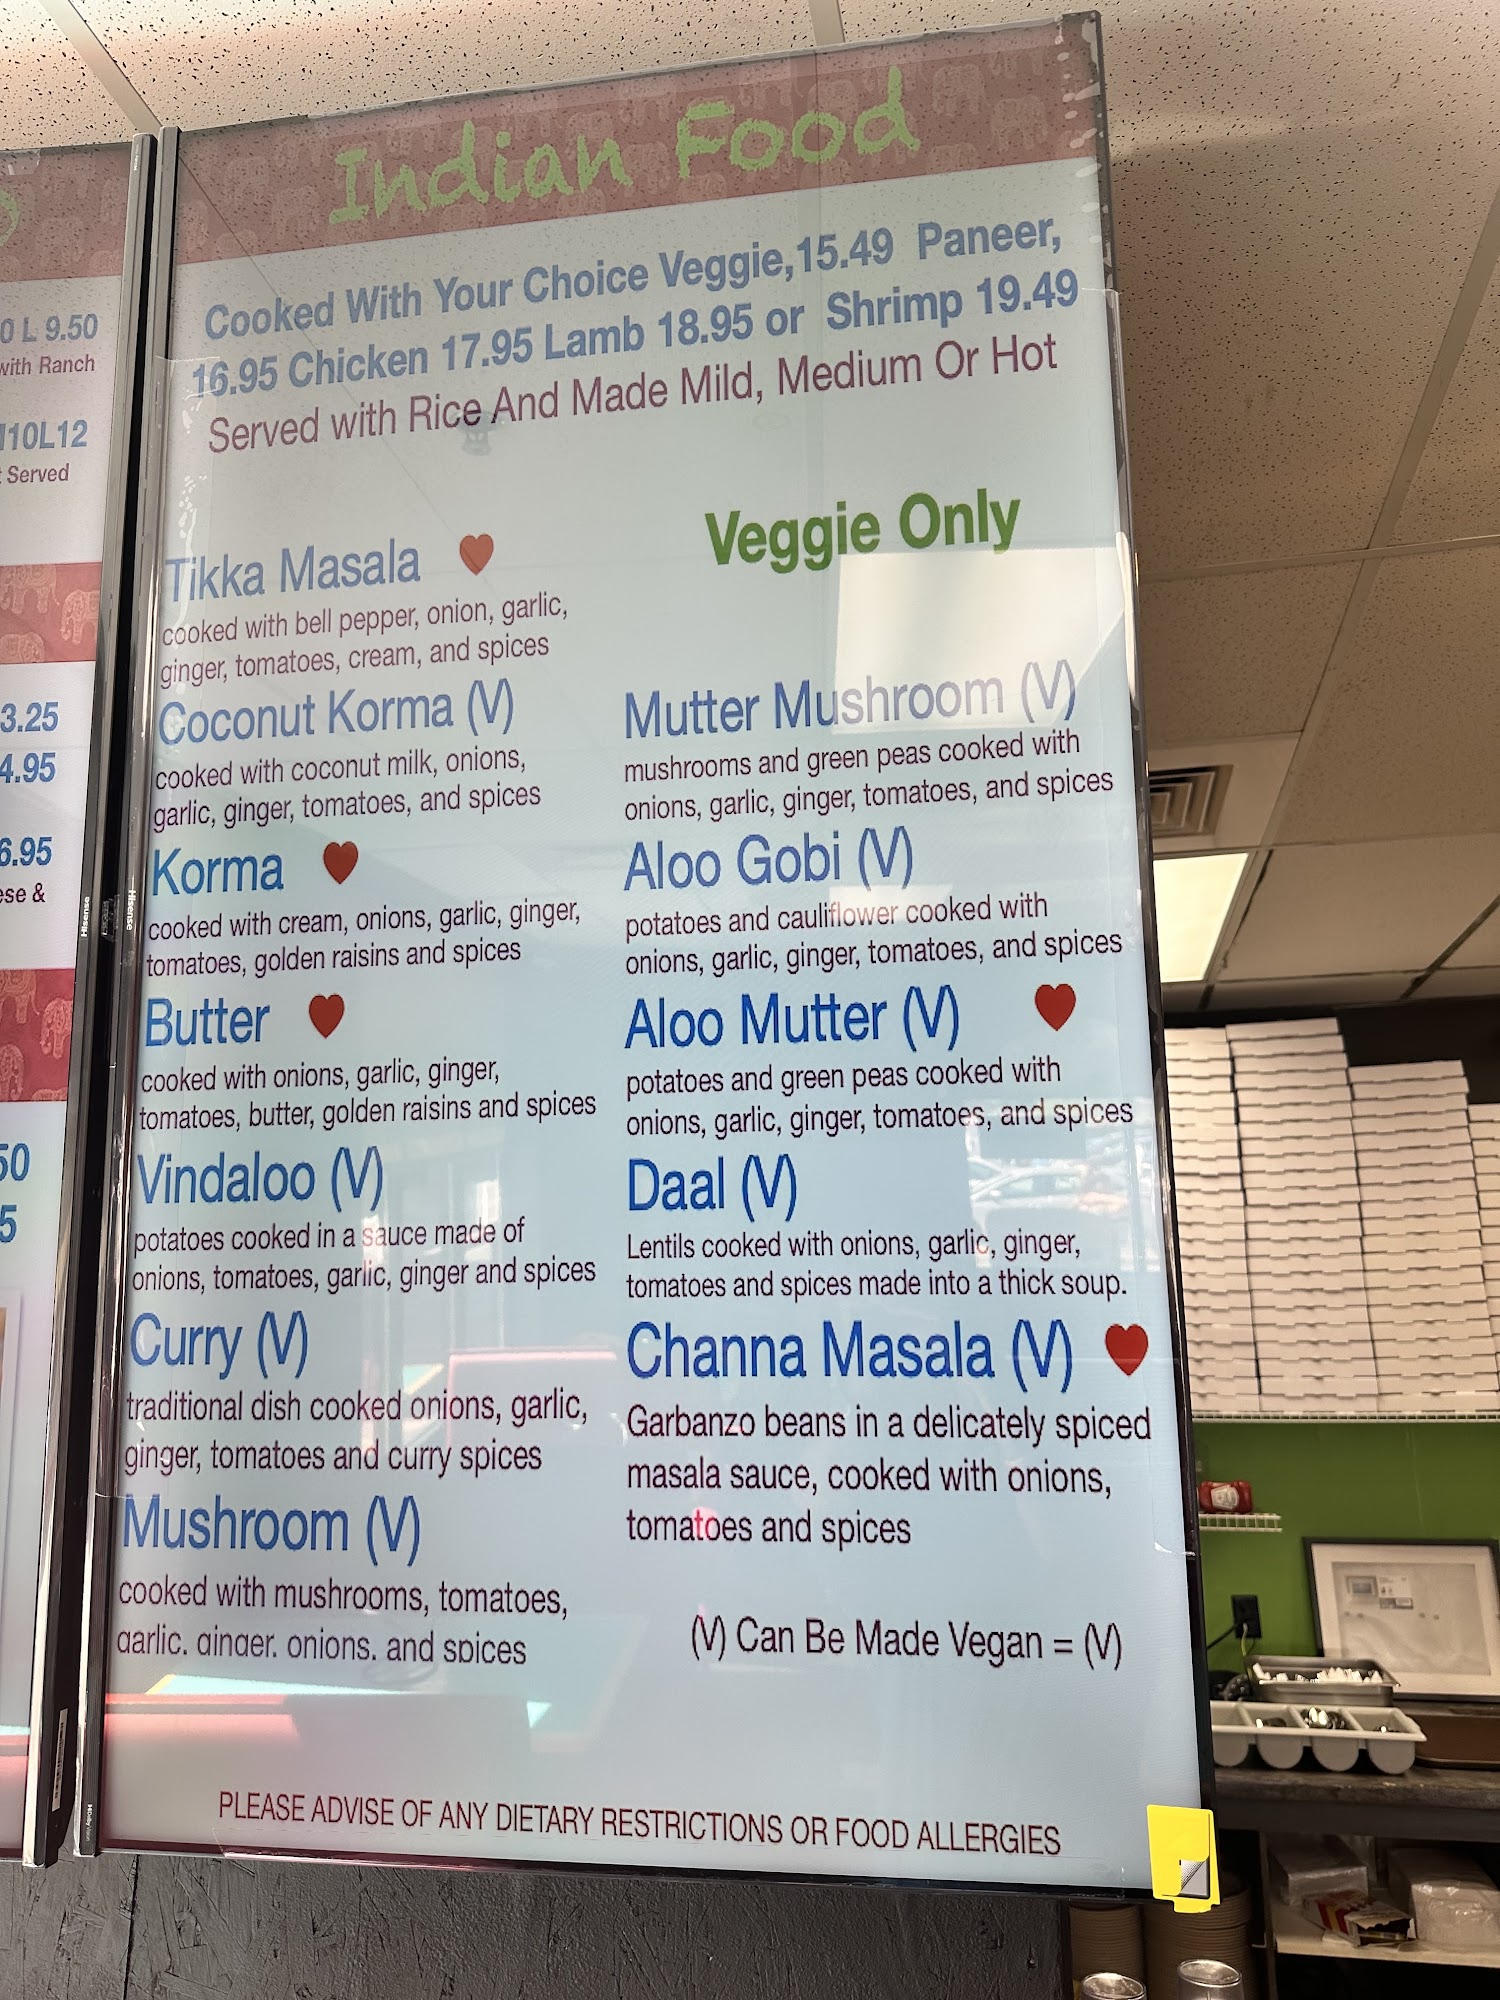 0 L 9.50
with Ranch
10L12
Served
3.25
4.95
6.95
ese &
50
5
Hisense
Hisense
Indian Food
Cooked With Your Choice Veggie,15.49 Paneer,
16.95 Chicken 17.95 Lamb 18.95 or Shrimp 19.49
Served with Rice And Made Mild, Medium Or Hot
Tikka Masala
cooked with bell pepper, onion, garlic,
ginger, tomatoes, cream, and spices
Coconut Korma (V)
cooked with coconut milk, onions,
garlic, ginger, tomatoes, and spices
Korma
cooked with cream, onions, garlic, ginger,
tomatoes, golden raisins and spices
Butter
cooked with onions, garlic, ginger,
tomatoes, butter, golden raisins and spices
Vindaloo (V)
potatoes cooked in a sauce made of
onions, tomatoes, garlic, ginger and spices
Curry (V)
traditional dish cooked onions, garlic,
ginger, tomatoes and curry spices
Mushroom (V)
cooked with mushrooms, tomatoes,
garlic, ginger, onions, and spices
Veggie Only
Mutter Mushroom (V)
mushrooms and green peas cooked with
onions, garlic, ginger, tomatoes, and spices
Aloo Gobi (V)
potatoes and cauliflower cooked with
onions, garlic, ginger, tomatoes, and spices
Aloo Mutter (V)
potatoes and green peas cooked with
onions, garlic, ginger, tomatoes, and spices
Daal (V)
Lentils cooked with onions, garlic, ginger,
tomatoes and spices made into a thick soup.
Channa Masala (V)
Garbanzo beans in a delicately spiced
masala sauce, cooked with onions,
tomatoes and spices
(V) Can Be Made Vegan = (V)
PLEASE ADVISE OF ANY DIETARY RESTRICTIONS OR FOOD ALLERGIES